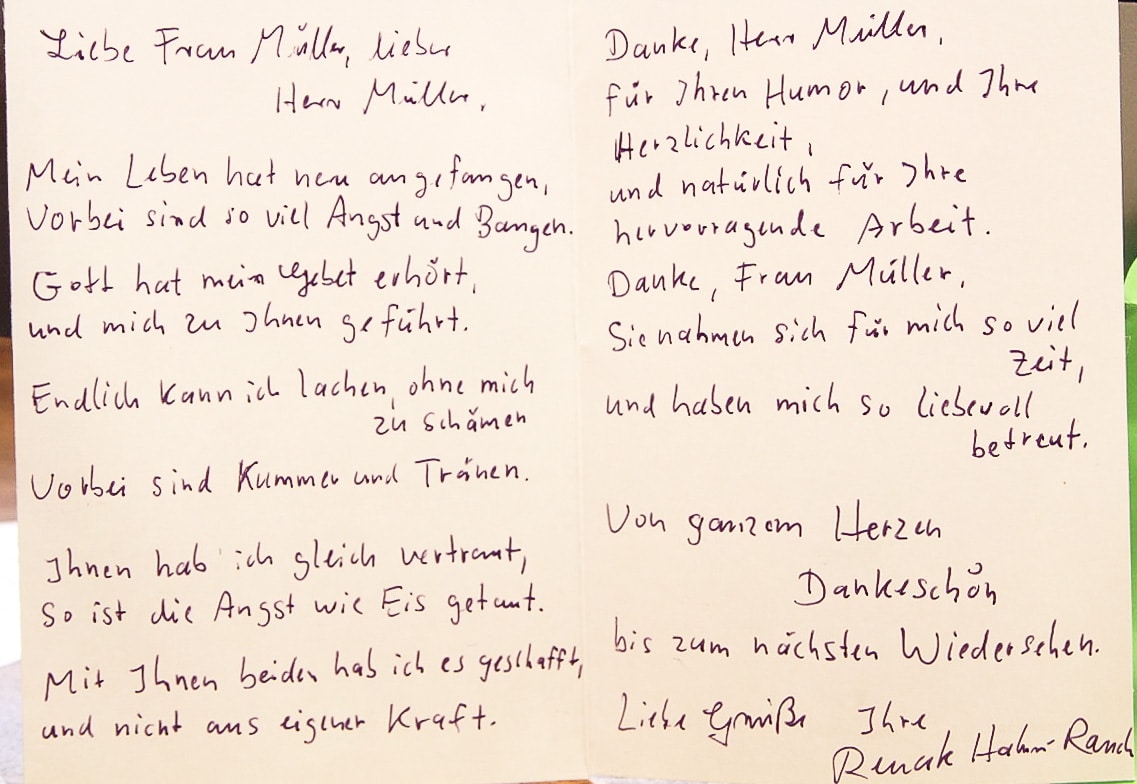 Liebe Frau Müller, lieber
Herr Müller,
Mein Leben hat neu angefangen,
Vorbei sind so viel Angst und Bangen.
Gott hat mein Gebet erhört,
und mich zu Ihnen geführt.
Endlich kann ich lachen, ohne mich
zu schämen
Vorbei sind Kummer und Tränen.
Ihnen hab ich gleich vertraut,
So ist die Angst wie Eis getaut.
Mit Ihnen beiden hab ich es geschafft,
und nicht aus eigener Kraft.
Danke, Herr Müller,
für Ihren Humor, und Ihre
Herzlichkeit,
und natürlich für Ihre
hervorragende Arbeit.
Danke, Frau Müller,
Sie nahmen sich für mich so viel
Zeit,
und haben mich so liebevoll
betreut.
Von ganzem Herzen
Dankeschön
bis zum nächsten Wiedersehen.
Liebe Grüße Ihre
Renate Hahn-Rauch